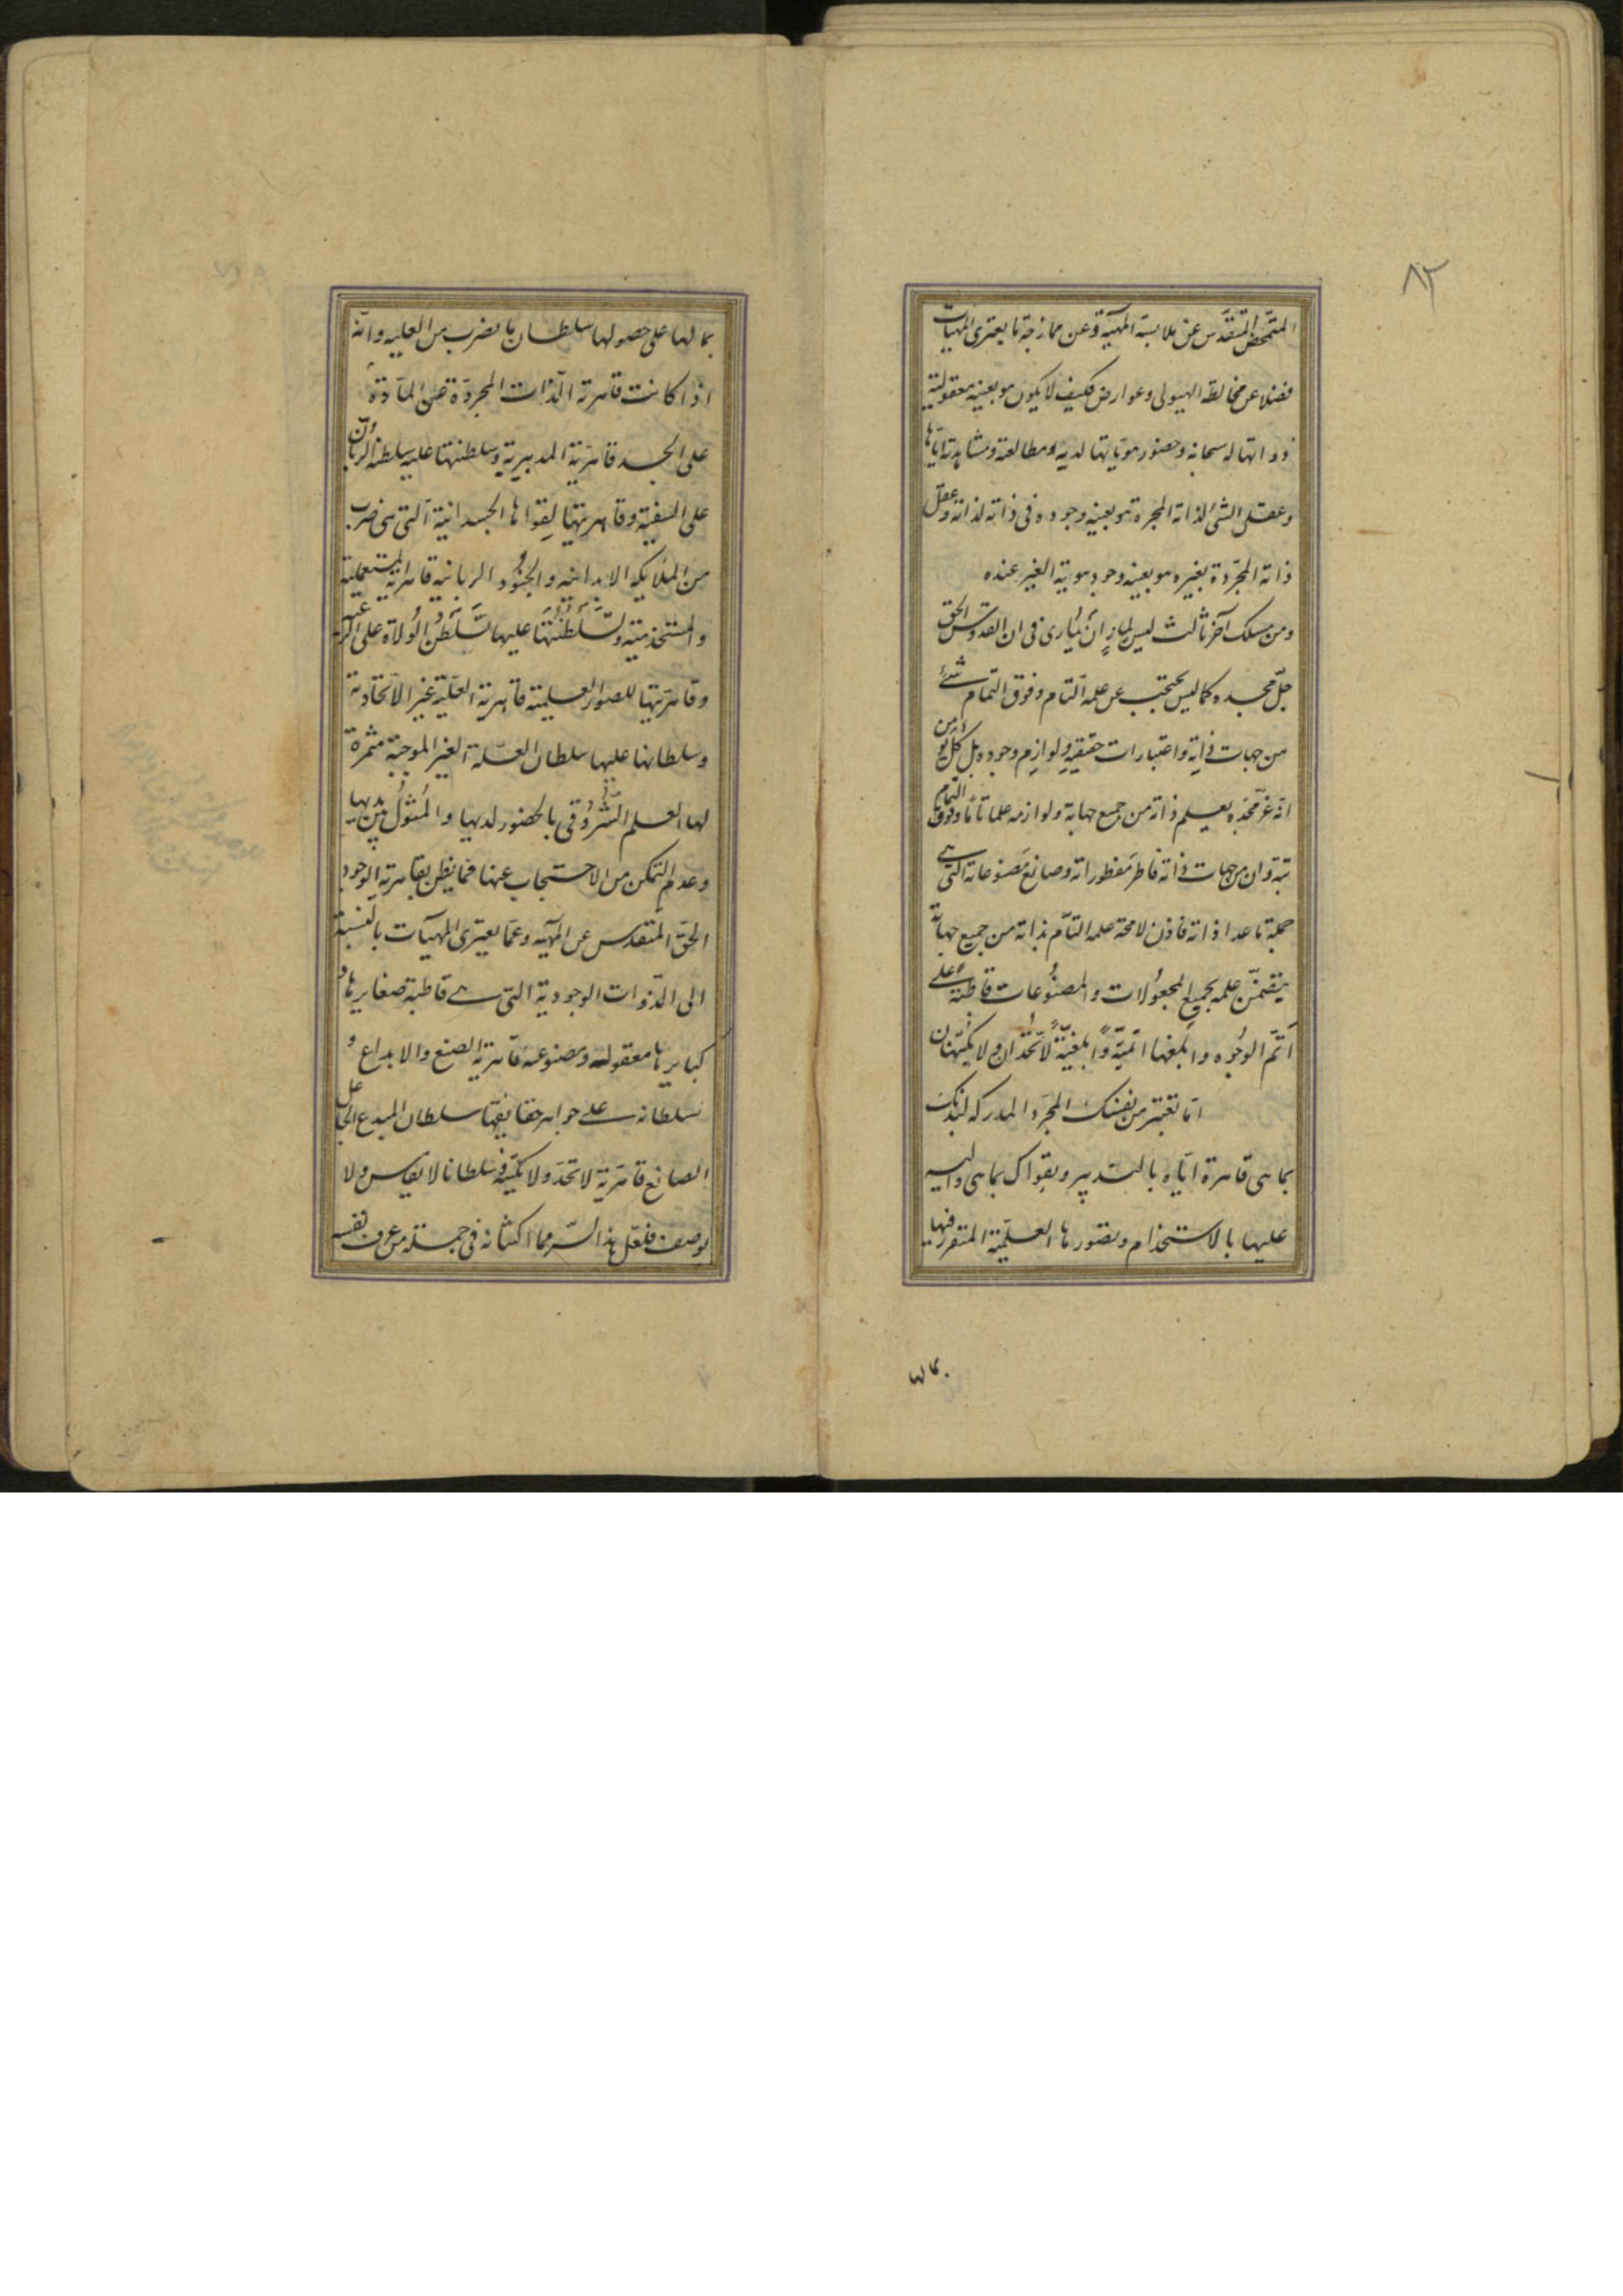 ٨٢
المتمحّض المتقدّس عن ملابسة المهيّة وعن ممازجة ما يعتري المهيات
فضلا عن مخالطة الهيولى وعوارض فكيف لا يكون هو بعينه معقولية
ذواتها له سبحانه وحضور هوياتها لديه ومطالعته ومشاهدته ايّاها
وعقل الشئ لذاته المجردة هو بعينه وجوده في ذاته لذاته وعقل
ذاته المجرّدة بغيره هو بعينه وجود هوية الغير عنده
ومن مسلك آخر ثالث ليس لمارٍ أن يُماري في ان القدّوس الحق
جلّ مجده كما ليس يحتجب عن علمه التام وفوق التمام شئ
من جهات ذاته واعتبارات حقيقته ولوازم وجوده بل كل
انه عزّ مجده يعلم ذاته من جميع جهاته ولوازمه علما تامّا وفوق التمام
بتة وان من جهات ذاته فاطر مفطوراته وصانع مصنوعاته التي هي
جملة ما عدا ذاته فاذن لا محة علمه التامّ بذاته من جميع جهاته
يتضمّن علمه بجميع المجعولات والمصنوعات قاطبةً على
أتمّ الوجوه وابلغها اتميّةً وابلغيّةً لا تُحدّان ولا تكتنهان
اما تعتبر من نفسك المجرّد المدركه لبدنك
بما هي قاهرة ايّاه بالتدبير وبقواك بما هي والية
عليها بالاستخدام وبصورها العلميّة المتقررة فيها
بما لها على حصولها سلطان ما بضرب من العلية وانّه
اذا كانت قاهرية الذات المجرّدة عن المادّة
على الجسد قاهريّة المدبيرية وسلطنتها عليه سلطنة الربان
على السفينة وقاهريتها لقواها الجسدانية التي هي ضرب
من الملايكة الابدانيه والجنود الربانية قاهرية المستعملية
والمستخدمية وتسلطنتها عليها تسلطن الولاة على الرعية
وقاهريّتها للصور العلمية قاهرية العليّة غير الاتحادية
وسلطانها عليها سلطان العلّة الغير الموجبة مثمرة
لها العلم الشروقي بالحضور لديها والمثول بين يديها
وعدم التمكن من الاحتجاب عنها فما يظن بقاهرية الوجود
الحقّ المتقدس عن المهيّة وعما يعتري المهيّات بالنسبة
الى الذوات الوجودية التي هي قاطبة صغايرها و
كبايرها معقولة ومصنوعه قاهرية الصنع والابداع و
سلطانه على جواهر حقايقها سلطان المبدع الجاعل
الصانع قاهريّة لا تحدّ ولا تكتنه وسلطانا لا يقاس ولا
يوصف فلعل هذا السرّ مما اكتناه في جملة من عرف نفسه
بما لها